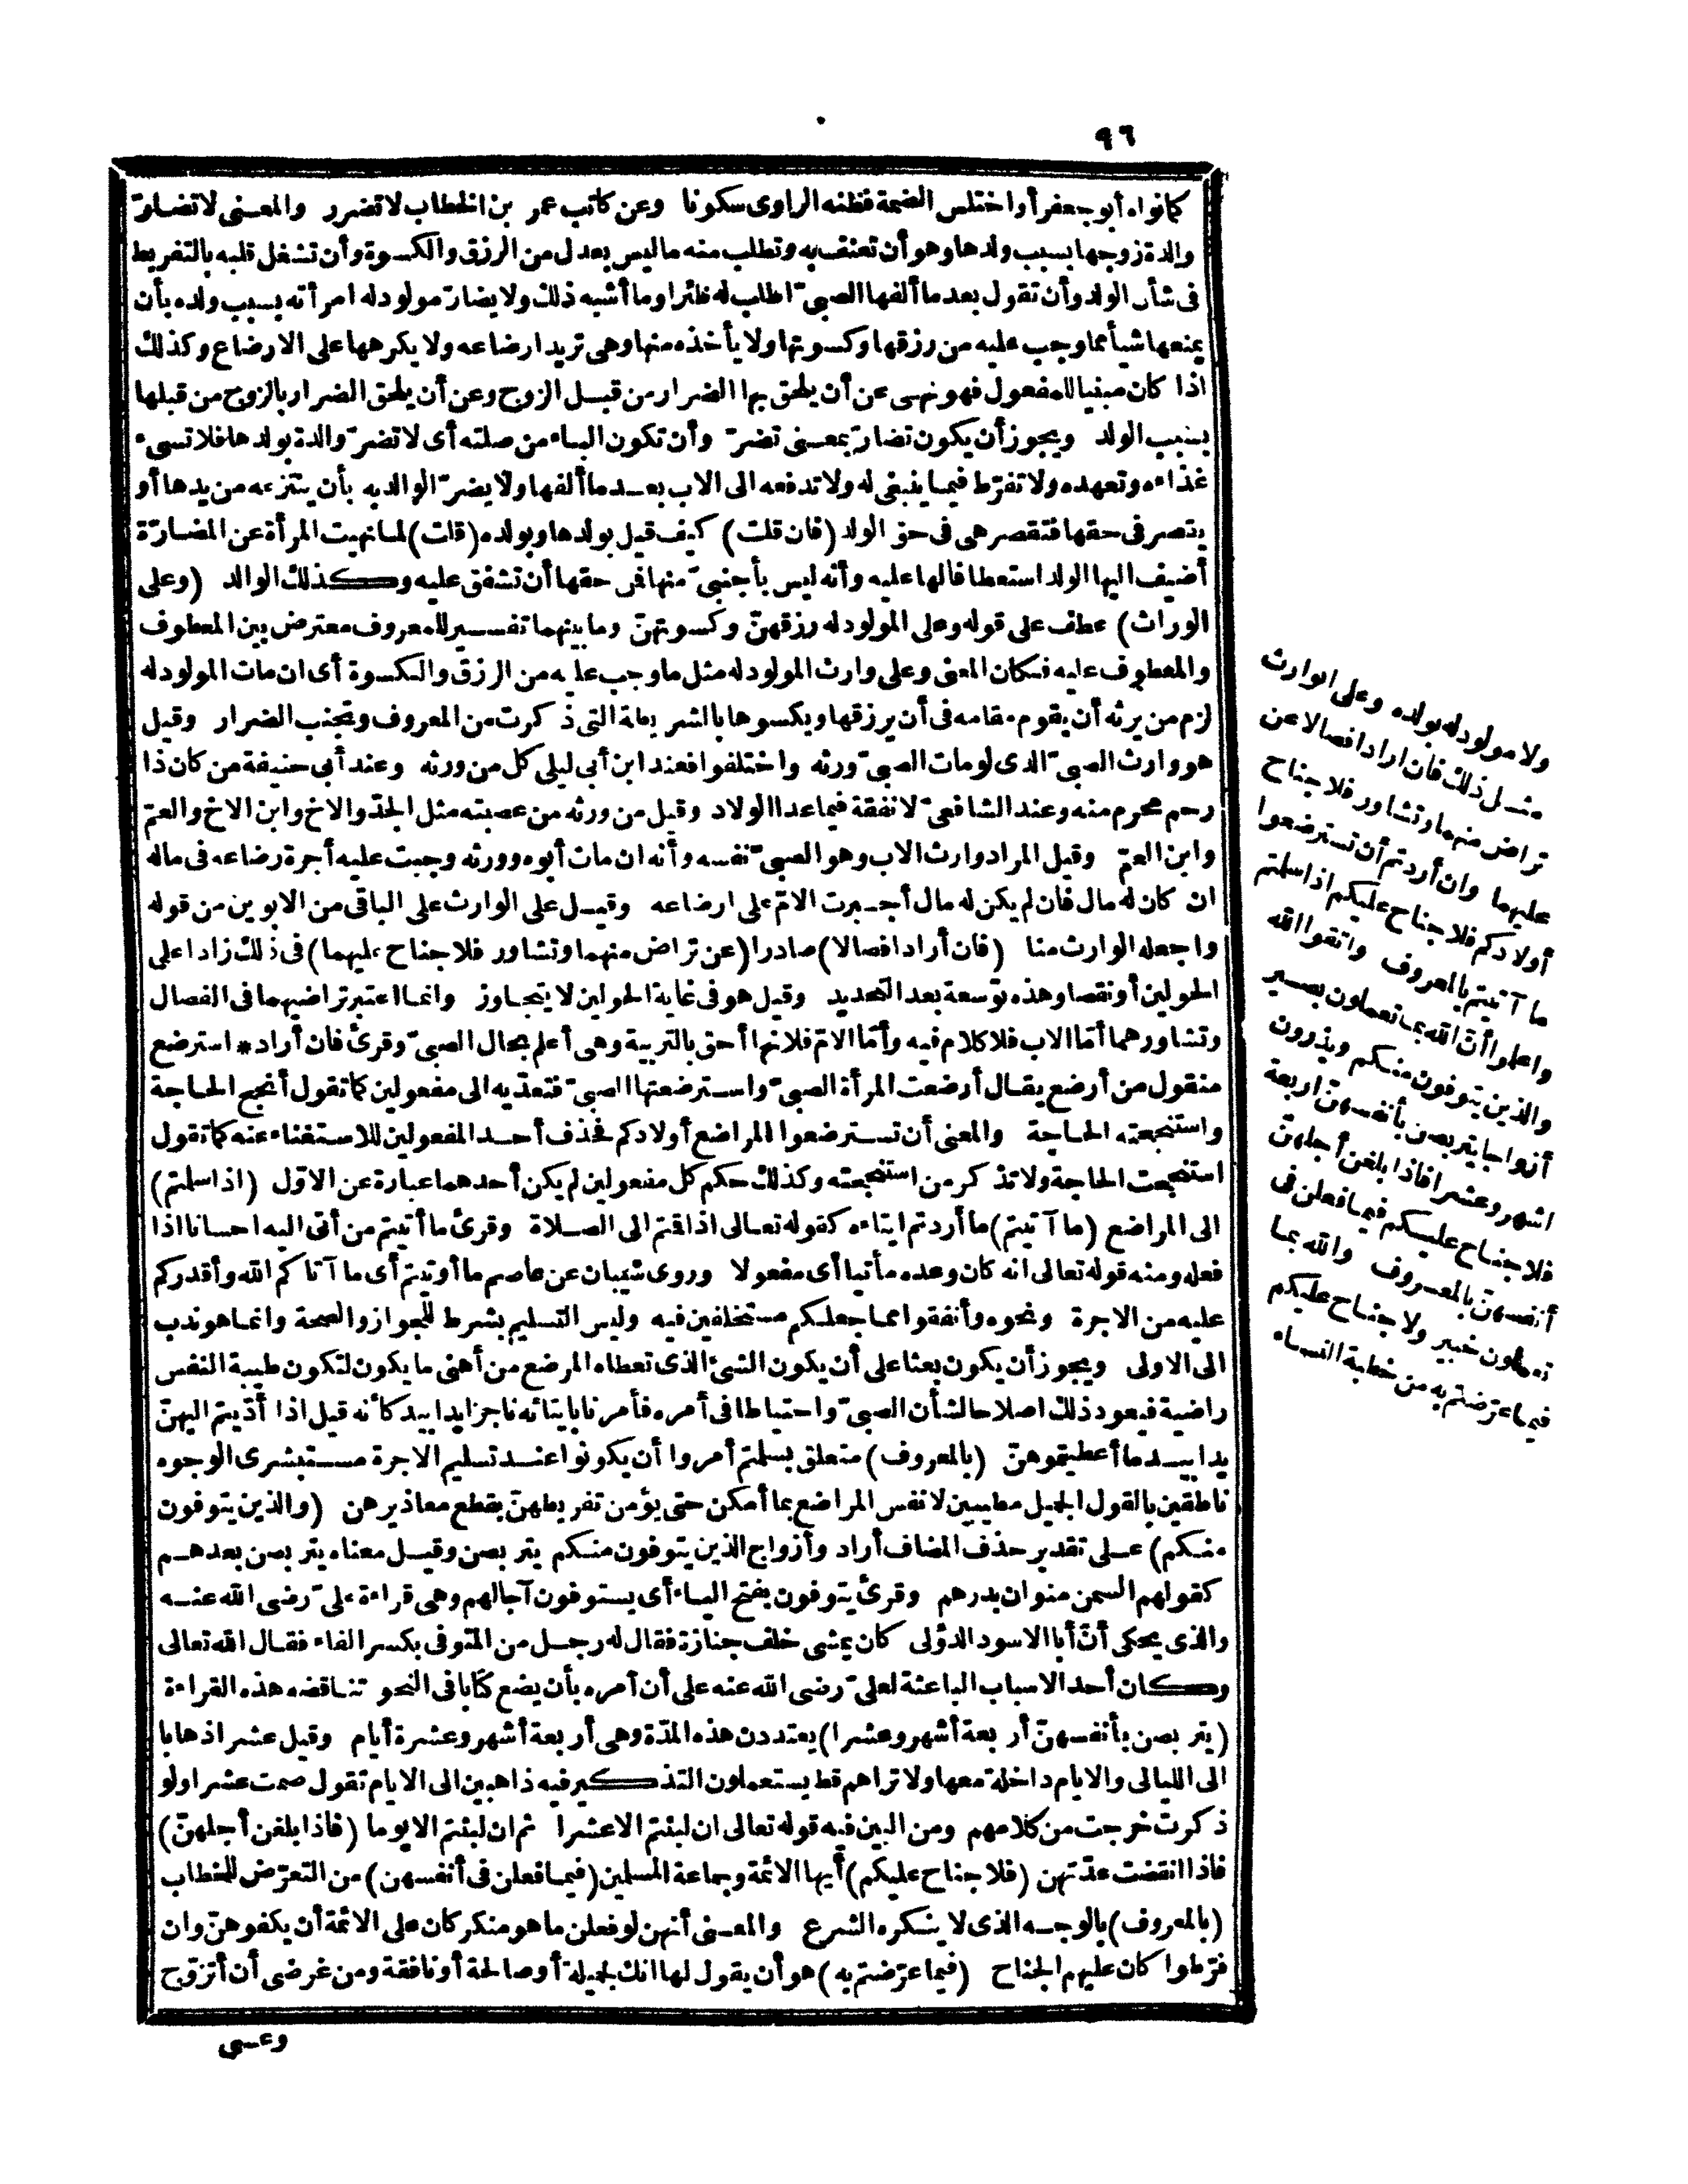 ٩٦
كمانواه أبو جعفر أو اختلس الضمة فظنه الراوى سكونا وعن كاتب عمر بن الخطاب لا تضرر والمعنى لا تضارّ
والدة زوجها بسبب ولدها وهو أن تعنف به وتطلب منه ما ليس بعدل من الرزق والكسوة وأن تشغل قلبه بالتفريط
فى شأن الولد وأن تقول بعد ما ألفها الصبىّ اطلب له ظئرا وما أشبه ذلك ولا يضارّ مولود له امرأته بسبب ولده بأن
يمنعها شيأ مما وجب عليه من رزقها وكسوتها ولا يأخذه منها وهى تريد ارضاعه ولا يكرهها على الارضاع وكذلك
اذا كان مبنيا للمفعول فهو نهى عن أن يلحق بها الضرار من قبل الزوج وعن أن يلحق الضرار بالزوج من قبلها
بسبب الولد ويجوز أن يكون تضارّ بمعنى تضرّ وأن تكون الباء من صلته أى لا تضرّ والدة بولدها فلا تسىء
غذاءه وتعهده ولا تفرّط فيما ينبغى له ولا تدفعه الى الاب بعد ما ألفها ولا يضرّ الوالد به بأن ينتزعه من يدها أو
يقصر فى حقها فتقصر هى فى حق الولد (فان قلت) كيف قيل بولدها وبولده (قلت) لما نهيت المرأة عن المضارّة
أضيف اليها الولد استعطافا لها عليه وأنه ليس بأجنبىّ منها فمن حقها أن تشفق عليه وكذلك الوالد (وعلى
الوراث) عطف على قوله وعلى المولود له رزقهنّ وكسوتهنّ وما بينهما تفسير للمعروف معترض بين المعطوف
والمعطوف عليه فكان المعنى وعلى وارث المولود له مثل ما وجب عليه من الرزق والكسوة أى ان مات المولود له
لزم من يرثه أن يقوم مقامه فى أن يرزقها ويكسوها بالشريطة التى ذكرت من المعروف وتجنب الضرار وقيل
هو وارث الصبىّ الذى لو مات الصبىّ ورثه واختلفوا فعند ابن أبى ليلى كل من ورثه وعند أبى حنيفة من كان ذا
رحم محرم منه وعند الشافعىّ لا نفقة فيما عدا الولاد وقيل من ورثه من عصبته مثل الجدّ والاخ وابن الاخ والعمّ
وابن العمّ وقيل المراد وارث الاب وهو الصبىّ نفسه وأنه ان مات أبوه وورثه وجبت عليه أجرة رضاعه فى ماله
ان كان له مال فان لم يكن له مال أجبرت الامّ على ارضاعه وقيل على الوارث على الباقى من الابوين من قوله
واجعله الوارث منا (فان أرادا فصالا) صادرا (عن تراض منهما وتشاور فلا جناح عليهما) فى ذلك زادا على
الحولين أو نقصا وهذه توسعة بعد التحديد وقيل هو فى غاية الحولين لا يتجاوز وانما اعتبر تراضيهما فى الفصال
وتشاورهما أمّا الاب فلا كلام فيه وأمّا الامّ فلانها أحق بالتربية وهى أعلم بحال الصبىّ وقرئ فان أراد * استرضع
منقول من أرضع يقال أرضعت المرأة الصبىّ واسترضعتها الصبىّ فتعدّيه الى مفعولين كما تقول أنجح الحاجة
واستنجحته الحاجة والمعنى أن تسترضعوا المراضع أولادكم فحذف أحد المفعولين للاستغناء عنه كما تقول
استنجحت الحاجة ولا تذكر من استنجحته وكذلك حكم كل مفعولين لم يكن أحدهما عبارة عن الاوّل (اذا سلمتم)
الى المراضع (ما آتيتم) ما أردتم ايتاءه كقوله تعالى اذا قتم الى الصلاة وقرئ ما أتيتم من أتى اليه احسانا اذا
فعله ومنه قوله تعالى انه كان وعده مأتيا أى مفعولا وروى شيبان عن عاصم ما أوتيتم أى ما آتاكم الله وأقدركم
عليه من الاجرة ونحوه وأنفقوا مما جعلكم مستخلفين فيه وليس التسليم بشرط للجواز والصحة وانما هو ندب
الى الاولى ويجوز أن يكون بعثا على أن يكون الشئ الذى تعطاه المرضع من أهنى ما يكون لتكون طيبة النفس
راضية فيعود ذلك اصلاحا لشأن الصبىّ واحتياطا فى أمره فأمرنا بايتائه ناجزا يدا بيد كأنه قيل اذا أدّيتم اليهنّ
يدا بيد ما أعطيتموهنّ (بالمعروف) متعلق بسلمتم أمروا أن يكونوا عند تسليم الاجرة مستبشرى الوجوه
ناطقين بالقول الجميل مطيبين لانفس المراضع بما أمكن حتى يؤمن تفريطهنّ بقطع معاذيرهن (والذين يتوفون
منكم) على تقدير حذف المضاف أراد وأزواج الذين يتوفون منكم يتربصن وقيل معناه يتربصن بعدهم
كقولهم السمن منوان بدرهم وقرئ يتوفون بفتح الياء أى يستوفون آجالهم وهى قراءة علىّ رضى الله عنه
والذى يحكى أنّ أبا الاسود الدؤلى كان يمشى خلف جنازة فقال له رجل من المتوفى بكسر الفاء فقال الله تعالى
وكان أحد الاسباب الباعثة لعلىّ رضى الله عنه على أن أمره بأن يضع كتابا فى النحو تناقضه هذه القراءة
(يتربصن بأنفسهنّ أربعة أشهر وعشرا) يعتددن هذه المدّة وهى أربعة أشهر وعشرة أيام وقيل عشرا ذهابا
الى الليالى والايام داخلة معها ولا تراهم قط يستعملون التذكير فيه ذاهبين الى الايام تقول صمت عشرا ولو
ذكرت خرجت من كلامهم ومن البين فيه قوله تعالى ان لبثتم الا عشرا ثم ان لبثتم الا يوما (فاذا بلغن أجلهنّ)
فاذا انقضت عدّتهن (فلا جناح عليكم) أيها الائمة وجماعة المسلمين (فيما فعلن فى أنفسهن) من التعرّض للخطاب
(بالمعروف) بالوجه الذى لا ينكره الشرع والمعنى أنهن لو فعلن ما هو منكر كان على الائمة أن يكفوهنّ وان
فرّطوا كان عليهم الجناح (فيما عرّضتم به) هو أن يقول لها انك لجميلة أو صالحة أو نافقة ومن غرضى أن أتزوّج
وعسى
ولا مولود له بولده وعلى الوارث
مثل ذلك فان ارادا فصالا عن
تراض منهما وتشاور فلا جناح
عليهما وان أردتم أن تسترضعوا
أولادكم فلا جناح عليكم اذا سلمتم
ما آتيتم بالمعروف واتقوا الله
واعلموا أنّ الله بما تعملون بصير
والذين يتوفون منكم ويذرون
أزواجا يتربصن بأنفسهنّ اربعة
اشهر وعشرا فاذا بلغن أجلهنّ
فلا جناح عليكم فيما فعلن فى
أنفسهنّ بالمعروف والله بما
تعملون خبير ولا جناح عليكم
فيما عرّضتم به من خطبة النساء